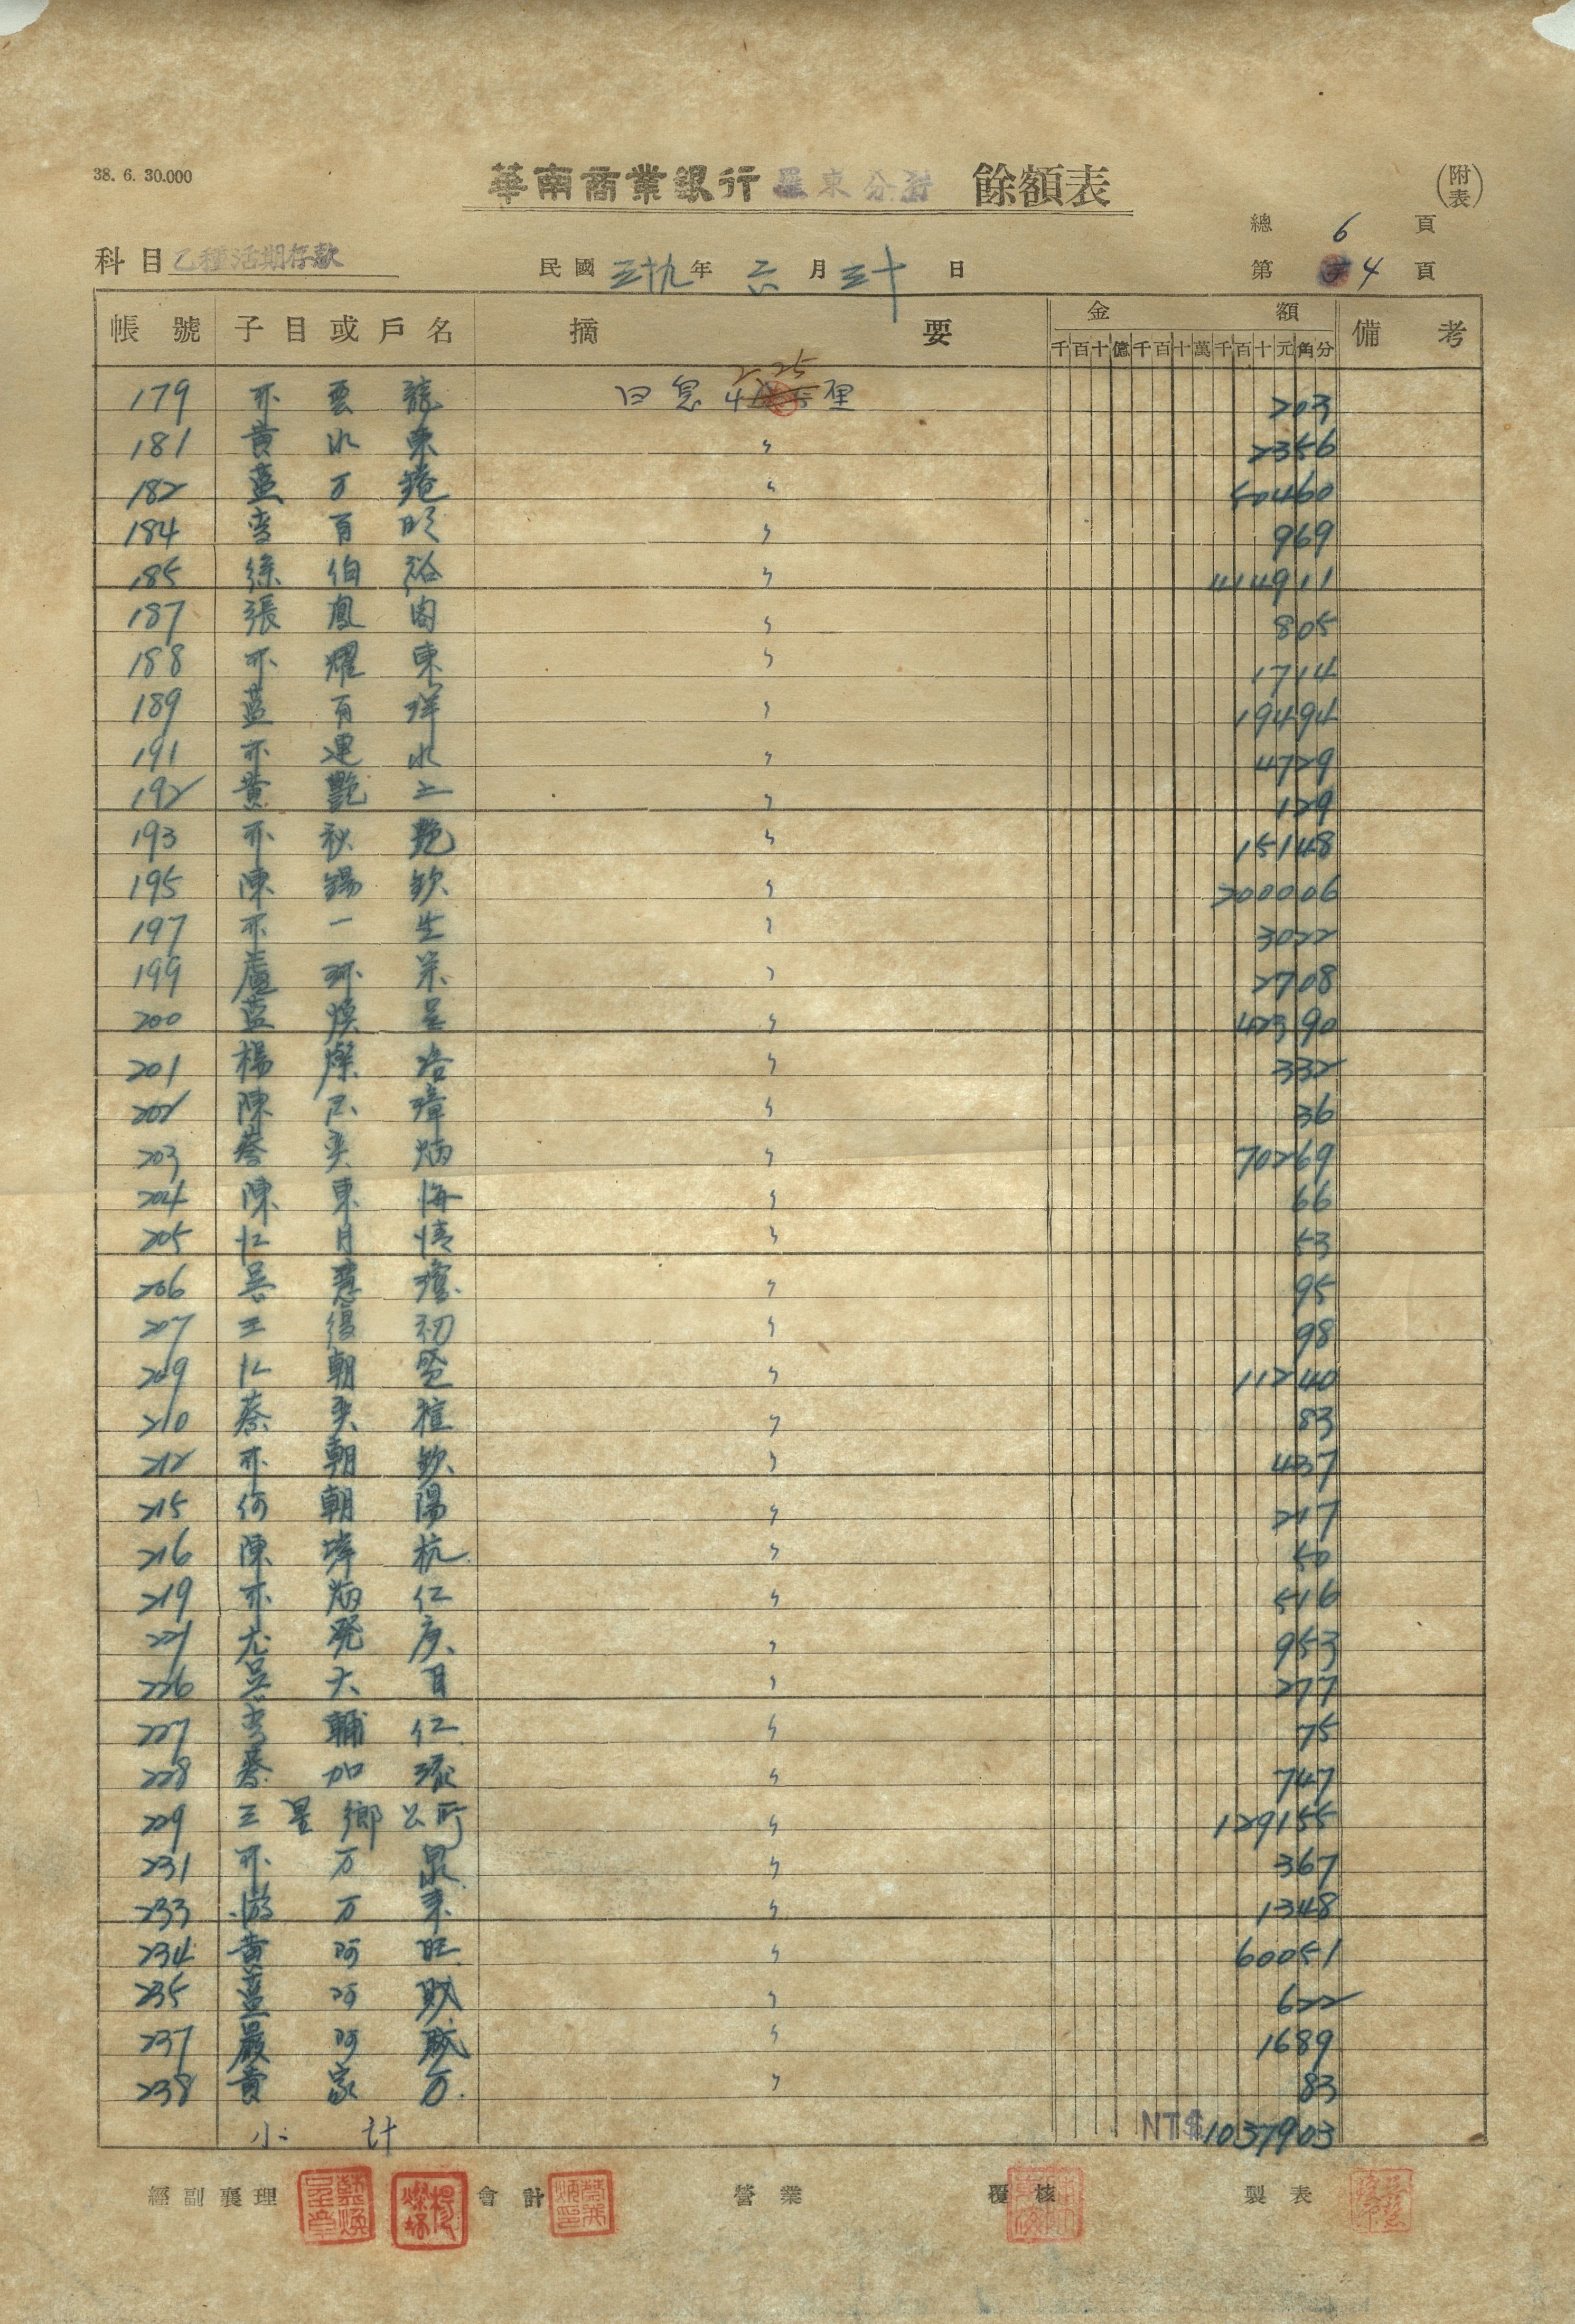 38. 6. 30.000
華南商業銀行 羅東分行 餘額表
(附表)
總 6 頁
科目 乙種活期存款 民國 三十九 年 六 月 三十 日 第 4 頁
帳號 子目或戶名 摘要 金額 備考
千百十億千百十萬千百十元角分
2.25
179 号 日息 厘 203
181 黃水東 〃 2356
182 藍万 〃 50460
184 百 〃 969
185 徐伯裕 〃 414911
187 張鳳 〃 805
188 耀東 〃 1714
189 藍百祥 〃 19494
191 運水 〃 4729
192 黃艷 〃 129
193 秋艷 〃 15148
195 陳錫欽 〃 200006
197 一生 〃 3022
199 盧 〃 2708
200 藍煥呈 〃 42390
201 楊燦 〃 332
202 陳 璋 〃 36
203 蔡奕炳 〃 70269
204 陳東海 〃 66
205 月 〃 53
206 吳慧瓊 〃 95
207 王 初 〃 98
209 朝 〃 11240
210 蔡奕 〃 83
212 朝欽 〃 437
215 何朝陽 〃 217
216 陳 杭 〃 50
219 炳仁 〃 516
221 尤 〃 953
226 吳大目 〃 277
227 輔仁 〃 75
228 蔡加 〃 747
229 三星鄉公所 〃 129155
231 万泉 〃 367
233 游万来 〃 1348
234 黃阿旺 〃 60051
235 藍阿財 〃 622
237 嚴阿 〃 1689
238 黃家万 〃 83
小計 NT$1037903
經副襄理 會計 營業 覆核 製表